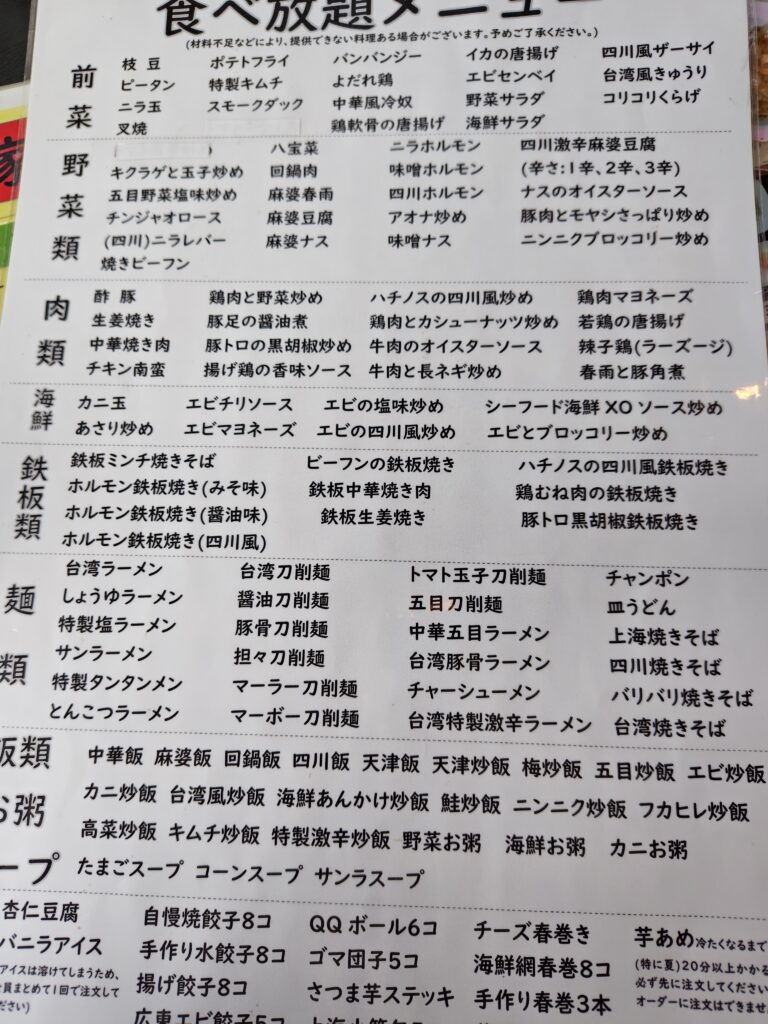 食べ放題メニュー
(材料不足などにより、提供できない料理ある場合がございます。予めご了承ください。)
前菜
枝豆 ポテトフライ バンバンジー イカの唐揚げ 四川風ザーサイ
ピータン 特製キムチ よだれ鶏 エビセンベイ 台湾風きゅうり
ニラ玉 スモークダック 中華風冷奴 野菜サラダ コリコリくらげ
叉焼 鶏軟骨の唐揚げ 海鮮サラダ
野菜類
八宝菜 ニラホルモン 四川激辛麻婆豆腐
キクラゲと玉子炒め 回鍋肉 味噌ホルモン (辛さ:1辛、2辛、3辛)
五目野菜塩味炒め 麻婆春雨 四川ホルモン ナスのオイスターソース
チンジャオロース 麻婆豆腐 アオナ炒め 豚肉とモヤシさっぱり炒め
(四川)ニラレバー 麻婆ナス 味噌ナス ニンニクブロッコリー炒め
焼きビーフン
肉類
酢豚 鶏肉と野菜炒め ハチノスの四川風炒め 鶏肉マヨネーズ
生姜焼き 豚足の醤油煮 鶏肉とカシューナッツ炒め 若鶏の唐揚げ
中華焼き肉 豚トロの黒胡椒炒め 牛肉のオイスターソース 辣子鶏(ラーズージ)
チキン南蛮 揚げ鶏の香味ソース 牛肉と長ネギ炒め 春雨と豚角煮
海鮮
カニ玉 エビチリソース エビの塩味炒め シーフード海鮮XOソース炒め
あさり炒め エビマヨネーズ エビの四川風炒め エビとブロッコリー炒め
鉄板類
鉄板ミンチ焼きそば ビーフンの鉄板焼き ハチノスの四川風鉄板焼き
ホルモン鉄板焼き(みそ味) 鉄板中華焼き肉 鶏むね肉の鉄板焼き
ホルモン鉄板焼き(醤油味) 鉄板生姜焼き 豚トロ黒胡椒鉄板焼き
ホルモン鉄板焼き(四川風)
麺類
台湾ラーメン 台湾刀削麺 トマト玉子刀削麺 チャンポン
しょうゆラーメン 醤油刀削麺 五目刀削麺 皿うどん
特製塩ラーメン 豚骨刀削麺 中華五目ラーメン 上海焼きそば
サンラーメン 担々刀削麺 台湾豚骨ラーメン 四川焼きそば
特製タンタンメン マーラー刀削麺 チャーシューメン バリバリ焼きそば
とんこつラーメン マーボー刀削麺 台湾特製激辛ラーメン 台湾焼きそば
飯類
お粥
中華飯 麻婆飯 回鍋飯 四川飯 天津飯 天津炒飯 梅炒飯 五目炒飯 エビ炒飯
カニ炒飯 台湾風炒飯 海鮮あんかけ炒飯 鮭炒飯 ニンニク炒飯 フカヒレ炒飯
高菜炒飯 キムチ炒飯 特製激辛炒飯 野菜お粥 海鮮お粥 カニお粥
ープ たまごスープ コーンスープ サンラスープ
杏仁豆腐 自慢焼餃子8コ QQボール6コ チーズ春巻き 芋あめ 冷たくなるまで
バニラアイス 手作り水餃子8コ ゴマ団子5コ 海鮮網春巻8コ (特に夏)20分以上かかる
アイスは溶けてしまうため、 揚げ餃子8コ さつま芋ステッキ 手作り春巻3本 必ず先に注文してください
員まとめて1回で注文して オーダーに注文はできませ
ださい) 広東エビ餃子5コ